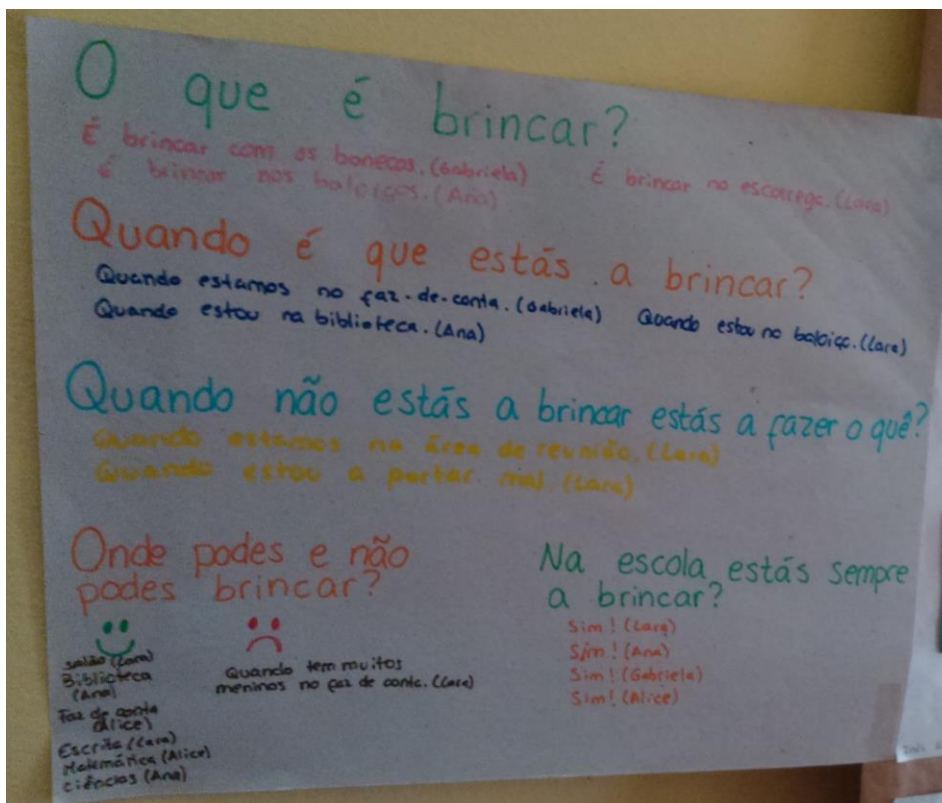 O que é brincar?
É brincar com os bonecos. (Gabriela) É brincar no escorrega. (Lara)
É brincar nos baloiços. (Ana)
Quando é que estás a brincar?
Quando estamos no faz-de-conta. (Gabriela) Quando estou no baloiço. (Lara)
Quando estou na biblioteca. (Ana)
Quando não estás a brincar estás a fazer o quê?
Quando estamos na área de reunião. (Lara)
Quando estou a portar mal. (Lara)
Onde podes e não
podes brincar?
Salão (Lara)
Biblioteca
(Ana)
Faz de conta
(Alice)
Escrita (Lara)
Matemática (Alice)
Ciências (Ana)
Quando tem muitos
meninos no faz de conta. (Lara)
Na escola estás sempre
a brincar?
Sim! (Lara)
Sim! (Ana)
Sim! (Gabriela)
Sim! (Alice)